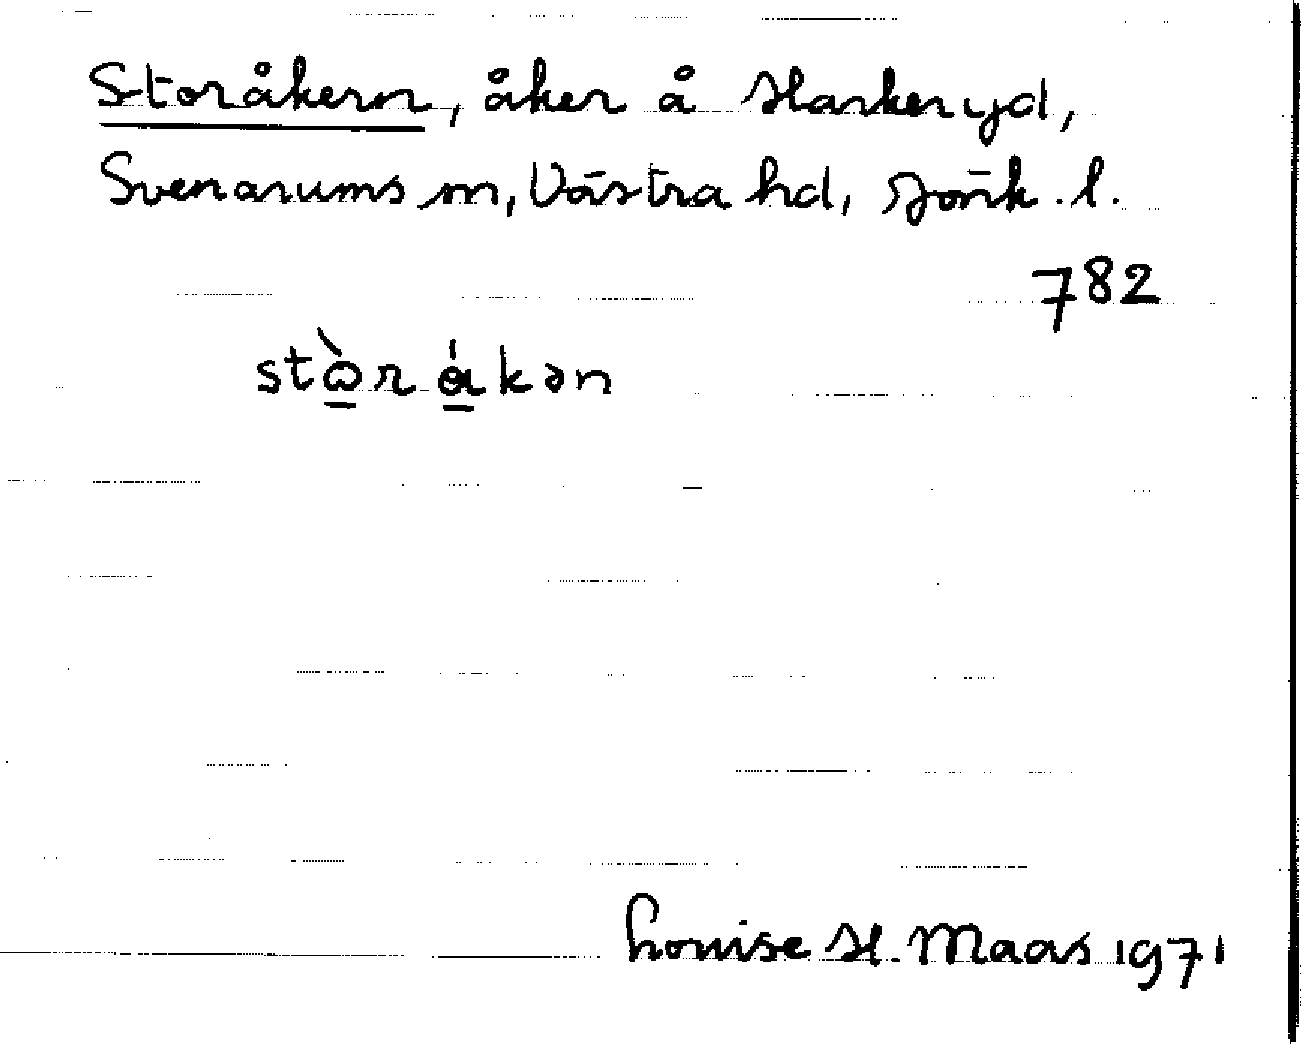 Storåkern, åker å Harkeryd,
Svenarums sn, Västra hd, Jönk. l.
782
stὼ̲r ά̲kən
Louise H. Maas 1971